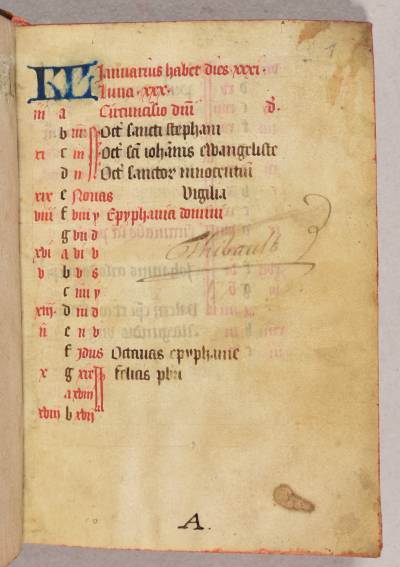 1
KL Ianuarius habet dies xxxi.
Luna .xxx.
iii a Circumcisio dñi d.
b iiii Oct' sancti stephani
xi c iii Oct' sci ioħanis ewangeliste
d ii Oct' sanctor innocentiū
xix e Nonas Vigilia
viii f viii y Epyphania domini
g vii d
xvi a vi b
v b v s
c iiii y
xiii d iii d
ii e ii v
f Idus Octauas epyphanie
x g xix felicis pbri
a xviii
xviii b xvii
Thibault
A.